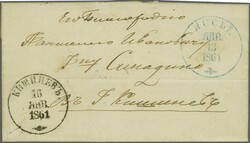 Его Благородію
Пантелею Ивановичу
Синадино
Въ Г. Кишиневъ
ЯССЫ
ЯНВ.
13
1861
КИШИНЕВЪ
16
ЯНВ.
1861